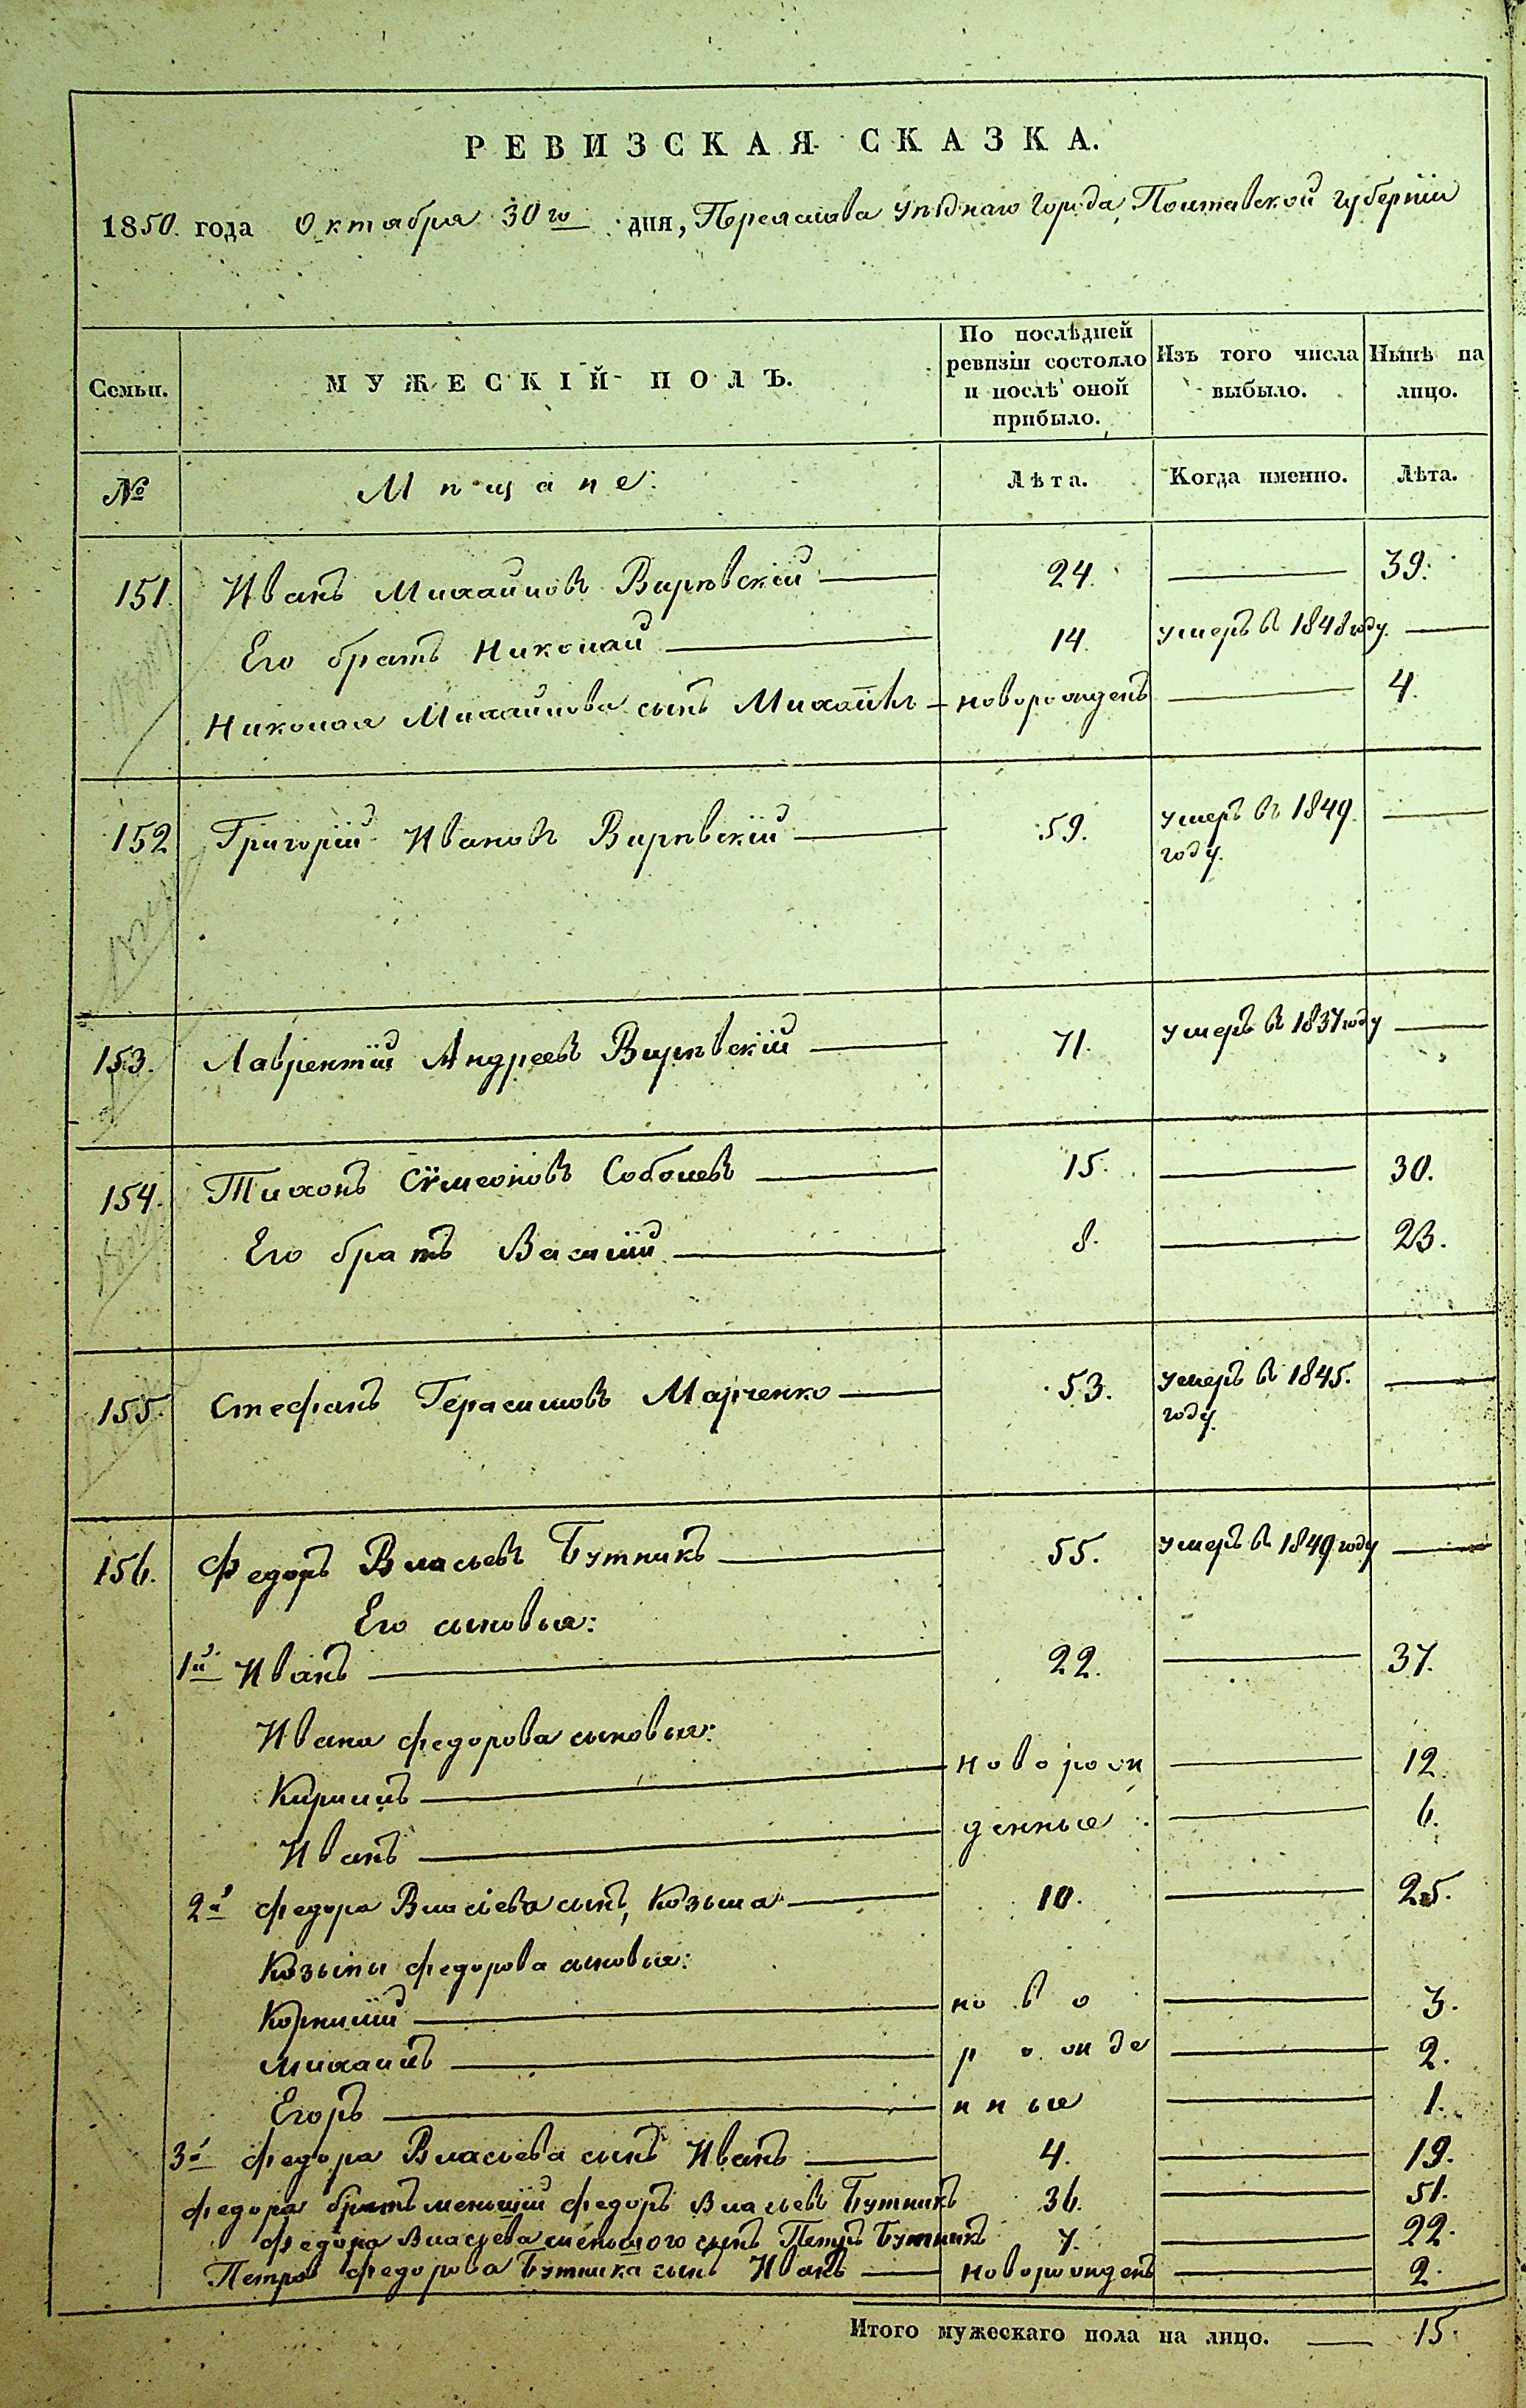 РЕВИЗСКАЯ СКАЗКА.
1850. года Октября 30го дня, Переяслова уѣзднаго города, Полтавской губерніи
Семьи.
МУЖЕСКІЙ ПОЛЪ.
По послѣдней ревизіи состояло и послѣ оной прибыло.
Изъ того числа выбыло.
Нынѣ на лицо.
№
Мѣщане:
Лѣта.
Когда именно.
Лѣта.
151. Иванъ Михайловъ Вирѣвскій 24. 39.
Его братъ Николай 14. умеръ въ 1848 году.
Николая Михайлова сынъ Михаилъ новорожденъ 4.
152 Григорій Ивановъ Вирѣвскій 59. умеръ въ 1849. году.
153. Лаврентій Андреевъ Вирѣвскій 71. умеръ въ 1837 году
154. Тихонъ Сѵмеоновъ Соболевъ 15. 30.
Его братъ Василій 8. 23.
155. Стефанъ Герасимовъ Марченко 53. умеръ въ 1845. году.
156. Федоръ Власьевъ Бутникъ 55. умеръ въ 1849 году
Его сыновья:
1й Иванъ 22. 37.
Ивана Федорова сыновья:
Кирилъ новорож 12.
Иванъ денные 6.
2й Федора Власьева сынъ, Козьма 10. 25.
Козьмы Федорова сыновья:
Корнилій ново 3.
Михаилъ рожде 2.
Егоръ нные 1.
3й Федора Власьева сынъ Иванъ 4. 19.
Федора братъ меньшій Федоръ Власьевъ Бутникъ 36. 51.
Федора Власьева меньшого сынъ Петръ Бутникъ 7. 22.
Петра Федорова Бутника сынъ Иванъ новорожденъ 2.
Итого мужескаго пола на лицо. 15.